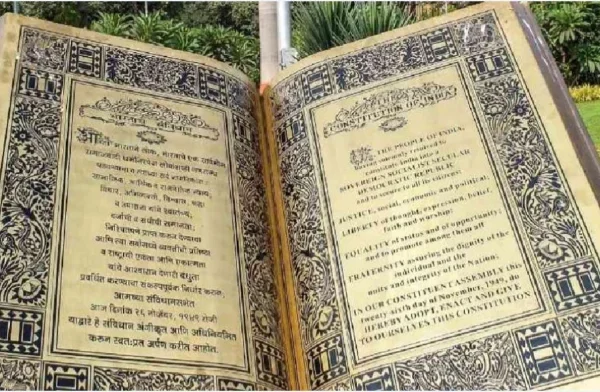 भारताचे संविधान
आम्ही भारताचे लोक, भारताचे एक सार्वभौम
समाजवादी धर्मनिरपेक्ष लोकशाही गणराज्य
घडविण्याचा व त्याच्या सर्व नागरिकांस
सामाजिक, आर्थिक व राजनैतिक न्याय;
विचार, अभिव्यक्ती, विश्वास, श्रद्धा
व उपासना यांचे स्वातंत्र्य;
दर्जाची व संधीची समानता;
निश्चितपणे प्राप्त करून देण्याचा
आणि त्या सर्वांमध्ये व्यक्तीची प्रतिष्ठा
व राष्ट्राची एकता आणि एकात्मता
यांचे आश्वासन देणारी बंधुता
प्रवर्धित करण्याचा संकल्पपूर्वक निर्धार करून;
आमच्या संविधानसभेत
आज दिनांक २६ नोव्हेंबर, १९४९ रोजी
याद्वारे हे संविधान अंगीकृत आणि अधिनियमित
करून स्वतःप्रत अर्पण करीत आहोत.
THE
CONSTITUTION OF INDIA
WE, THE PEOPLE OF INDIA,
having solemnly resolved to
constitute India into a
SOVEREIGN SOCIALIST SECULAR
DEMOCRATIC REPUBLIC
and to secure to all its citizens:
JUSTICE, social, economic and political;
LIBERTY of thought, expression, belief,
faith and worship;
EQUALITY of status and of opportunity;
and to promote among them all
FRATERNITY assuring the dignity of the
individual and the
unity and integrity of the Nation;
IN OUR CONSTITUENT ASSEMBLY this
twenty-sixth day of November, 1949, do
HEREBY ADOPT, ENACT AND GIVE
TO OURSELVES THIS CONSTITUTION